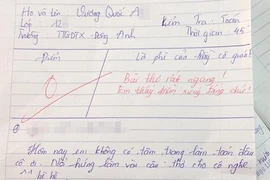 Họ và tên: Vương Quốc A
Kiểm Tra: Toán
Lớp 12
Thời gian: 45
Trường TTGDTX Đông Anh
Điểm
Lời phê của thầy cô giáo!
0
Bài thơ rất ngang!
Em thấy trên xứng đáng chứ!
Hôm nay em không có tâm trạng làm toán đâu
cô ơi. Nổi hứng làm vài câu thơ cho cô nghe
^^ hì hì